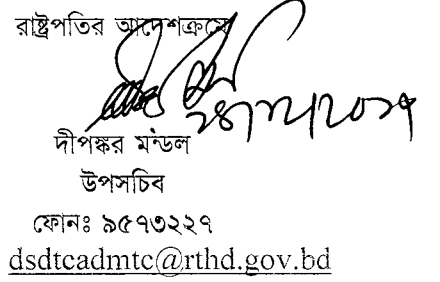 রাষ্ট্রপতির আদেশক্রমে
দীপঙ্কর মন্ডল
উপসচিব
ফোনঃ ৯৫৭৩২২৭
dsdtcadmtc@rthd.gov.bd